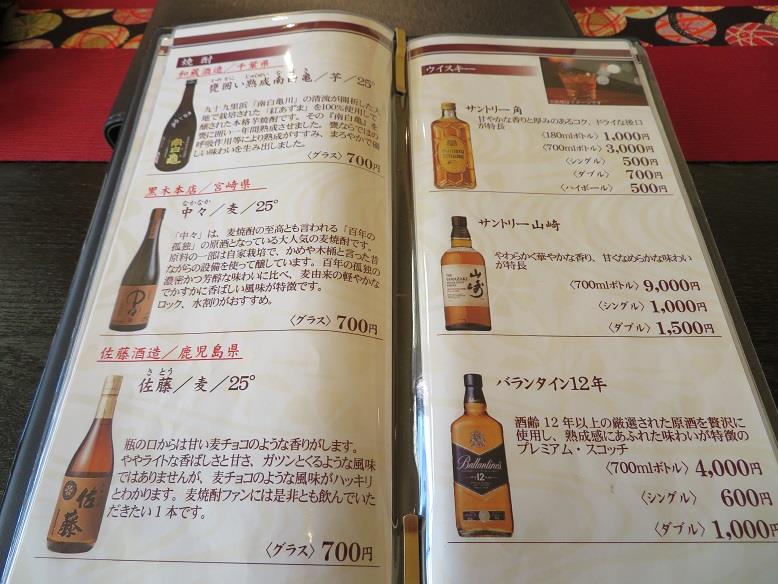 焼酎
和蔵酒造／千葉県
甕囲い熟成南白亀／芋／25°
九十九里浜「南白亀川」の清流が開析した大
地で栽培された「紅あずま」を100%使用して
醸された本格芋焼酎です。その『南白亀』を
甕に囲い一年間熟成させました。甕ならではの
呼吸作用等により熟成がすすみ、まろやかで優
しい味わいを生み出しました。
〈グラス〉700円
黒木本店／宮崎県
なかなか
中々／麦／25°
「中々」は、麦焼酎の至高とも言われる「百年の
孤独」の原酒となっている大人気の麦焼酎です。
原料の一部は自家栽培で、かめや木桶と言った昔
ながらの設備を使って醸しています。百年の孤独の
濃密かつ芳醇な味わいに比べ、麦由来の軽やかな
でかすかに香ばしい風味が特徴です。
ロック、水割りがおすすめ。
〈グラス〉700円
佐藤酒造／鹿児島県
さとう
佐藤／麦／25°
瓶の口からは甘い麦チョコのような香りがします。
ややライトな香ばしさと甘さ、ガツンとくるような風味
ではありませんが、麦チョコのような風味がハッキリ
とわかります。麦焼酎ファンには是非とも飲んでいた
だきたい1本です。
〈グラス〉700円
南白亀
中々
佐藤
ウイスキー
サントリー角
甘やかな香りと厚みのあるコク、ドライな後口
が特長
〈180mlボトル〉1,000円
〈700mlボトル〉3,000円
〈シングル〉500円
〈ダブル〉700円
〈ハイボール〉500円
サントリー山崎
やわらかく華やかな香り、甘くなめらかな味わい
が特長
〈700mlボトル〉9,000円
〈シングル〉1,000円
〈ダブル〉1,500円
THE
YAMAZAKI
山崎
バランタイン12年
酒齢12年以上の厳選された原酒を贅沢に
使用し、熟成感にあふれた味わいが特徴の
プレミアム・スコッチ
〈700mlボトル〉4,000円
〈シングル〉600円
〈ダブル〉1,000円
Ballantine's
12